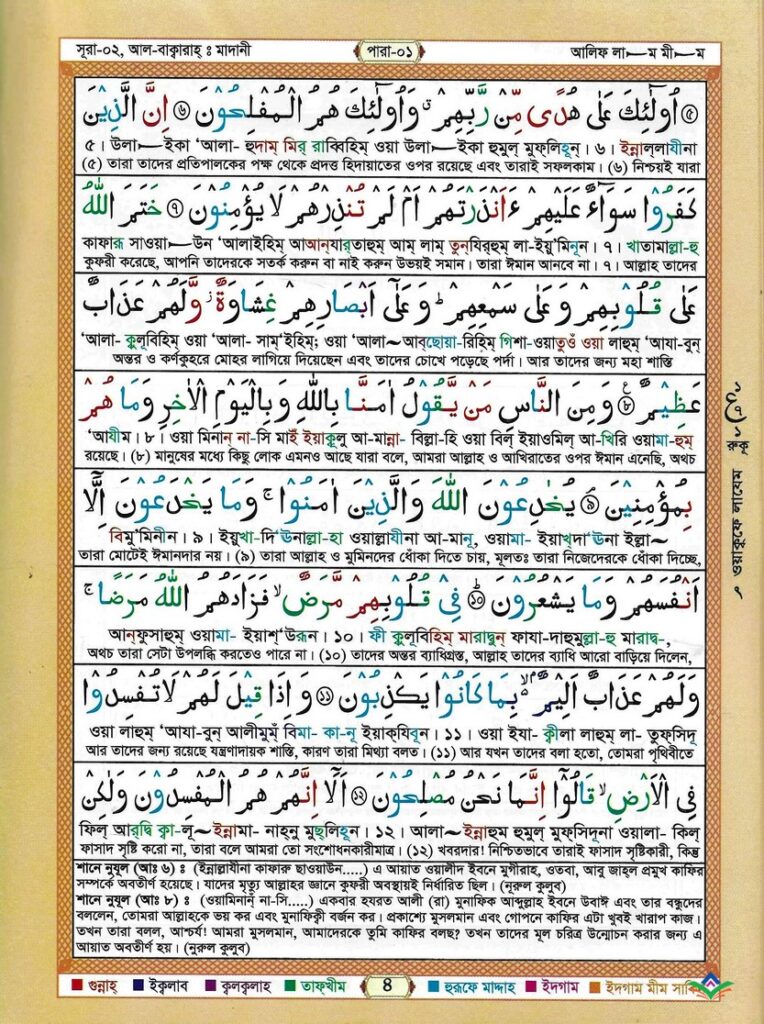 সূরা-০২, আল-বাক্বারাহ্ ঃ মাদানী
পারা-০১
আলিফ লা—ম মী—ম
۵ اُولٰٓئِكَ عَلٰى هُدًى مِّنْ رَّبِّهِمْ ۗ وَاُولٰٓئِكَ هُمُ الْمُفْلِحُوْنَ ۶ اِنَّ الَّذِيْنَ
৫। উলা—ইকা ‘আলা- হুদাম্ মির্ রাব্বিহিম্ ওয়া উলা—ইকা হুমুল্ মুফ্লিহূন্। ৬। ইন্নাল্লাযীনা
(৫) তারা তাদের প্রতিপালকের পক্ষ থেকে প্রদত্ত হিদায়াতের ওপর রয়েছে এবং তারাই সফলকাম। (৬) নিশ্চয়ই যারা
كَفَرُوْا سَوَآءٌ عَلَيْهِمْ ءَاَنْذَرْتَهُمْ اَمْ لَمْ تُنْذِرْهُمْ لَا يُؤْمِنُوْنَ ۷ خَتَمَ اللّٰهُ
কাফারূ সাওয়া—উন ‘আলাইহিম্ আআন্যার্তাহুম্ আম্ লাম্ তুন্যির্হুম্ লা-ইয়ু’মিনূন্। ৭। খাতামাল্লা-হু
কুফরী করেছে, আপনি তাদেরকে সতর্ক করুন বা নাই করুন উভয়ই সমান। তারা ঈমান আনবে না। ৭। আল্লাহ তাদের
عَلٰى قُلُوْبِهِمْ وَعَلٰى سَمْعِهِمْ ؕ وَعَلٰٓى اَبْصَارِهِمْ غِشَاوَةٌ ز وَّلَهُمْ عَذَابٌ
‘আলা- ক্বুলূবিহিম্ ওয়া ‘আলা- সাম্‘ইহিম্; ওয়া ‘আলা~ আব্ছোয়া-রিহিম্ গিশা-ওয়াতুওঁ ওয়া লাহুম্ ‘আযা-বুন্
অন্তর ও কর্ণকুহরে মোহর লাগিয়ে দিয়েছেন এবং তাদের চোখে পড়েছে পর্দা। আর তাদের জন্য মহা শাস্তি
عَظِيْمٌ ۸ وَمِنَ النَّاسِ مَنْ يَّقُوْلُ اٰمَنَّا بِاللّٰهِ وَبِالْيَوْمِ الْاٰخِرِ وَمَا هُمْ
‘আযীম। ৮। ওয়া মিনান্ না-সি মাইঁ ইয়াকূলু আ-মান্না- বিল্লা-হি ওয়া বিল্ ইয়াওমিল্ আ-খিরি ওয়ামা-হুম্
রয়েছে। (৮) মানুষের মধ্যে কিছু লোক এমনও আছে যারা বলে, আমরা আল্লাহ ও আখিরাতের ওপর ঈমান এনেছি, অথচ
بِمُؤْمِنِيْنَ ۹ يُخٰدِعُوْنَ اللّٰهَ وَالَّذِيْنَ اٰمَنُوْا ۚ وَمَا يَخْدَعُوْنَ اِلَّآ
বিমু’মিনীন। ৯। ইয়ুখা-দি‘ঊনাল্লা-হা ওয়াল্লাযীনা আ-মানূ, ওয়ামা- ইয়াখ্দা‘ঊনা ইল্লা~
তারা মোটেই ঈমানদার নয়। (৯) তারা আল্লাহ ও মুমিনদের ধোঁকা দিতে চায়, মূলতঃ তারা নিজেদেরকে ধোঁকা দিচ্ছে,
اَنْفُسَهُمْ وَمَا يَشْعُرُوْنَ ؕ ۱۰ فِىْ قُلُوْبِهِمْ مَّرَضٌ ۙ فَزَادَهُمُ اللّٰهُ مَرَضًا ۚ
আন্ফুসাহুম্ ওয়ামা- ইয়াশ্‘উরূন। ১০। ফী ক্বুলূবিহিম্ মারাদ্বুন্ ফাযা-দাহুমুল্লা-হু মারাদ্ব-,
অথচ তারা সেটা উপলব্ধি করতেও পারে না। (১০) তাদের অন্তর ব্যাধিগ্রস্ত, আল্লাহ তাদের ব্যাধি আরো বাড়িয়ে দিলেন,
وَلَهُمْ عَذَابٌ اَلِيْمٌ ۢ ۙ بِمَا كَانُوْا يَكْذِبُوْنَ ۱۱ وَاِذَا قِيْلَ لَهُمْ لَا تُفْسِدُوْا
ওয়া লাহুম্ ‘আযা-বুন্ আলীমুম্ বিমা- কা-নূ ইয়াক্যিবূন। ১১। ওয়া ইযা- ক্বীলা লাহুম্ লা- তুফ্সিদূ
আর তাদের জন্য রয়েছে যন্ত্রণাদায়ক শাস্তি, কারণ তারা মিথ্যা বলত। (১১) আর যখন তাদের বলা হতো, তোমরা পৃথিবীতে
فِى الْاَرْضِ ۙ قَالُوْٓا اِنَّمَا نَحْنُ مُصْلِحُوْنَ ۱۲ اَلَآ اِنَّهُمْ هُمُ الْمُفْسِدُوْنَ وَلٰكِنْ
ফিল্ আর্দ্বি ক্বা-লূ~ ইন্নামা- নাহ্নু মুছ্লিহূন। ১২। আলা~ ইন্নাহুম হুমুল্ মুফ্সিদূনা ওয়ালা- কিল্
ফাসাদ সৃষ্টি করো না, তারা বলে আমরা তো সংশোধনকারীমাত্র। (১২) খবরদার! নিশ্চিতভাবে তারাই ফাসাদ সৃষ্টিকারী, কিন্তু
শানে নুযূল (আঃ ৬) ঃ (ইন্নাল্লাযীনা কাফারু ছাওয়াউন.....) এ আয়াত ওয়ালীদ ইবনে মুগীরাহ, ওতবা, আবু জাহ্ল প্রমুখ কাফির
সম্পর্কে অবতীর্ণ হয়েছে। যাদের মৃত্যু আল্লাহর জ্ঞানে কুফরী অবস্থায়ই নির্ধারিত ছিল। (নুরুল কুলুব)
শানে নুযূল (আঃ ৮) ঃ (ওয়ামিনান্ না-সি.....) একবার হযরত আলী (রা) মুনাফিক আব্দুল্লাহ ইবনে উবাঈ এবং তার বন্ধুদের
বললেন, তোমরা আল্লাহকে ভয় কর এবং মুনাফিক্বী বর্জন কর। প্রকাশ্যে মুসলমান এবং গোপনে কাফির এটা খুবই খারাপ কাজ।
তখন তারা বলল, আশ্চর্য! আমরা মুসলমান, আমাদেরকে তুমি কাফির বলছ? তখন তাদের মূল চরিত্র উন্মোচন করার জন্য এ
আয়াত অবতীর্ণ হয়। (নুরুল কুলুব)
গুন্নাহ্ ইক্বলাব ক্বলক্বলাহ্ তাফ্খীম
4
হুরূফে মাদ্দাহ ইদগাম ইদগাম মীম সাকি
রুকূ
ওয়াক্বফে লাযেম